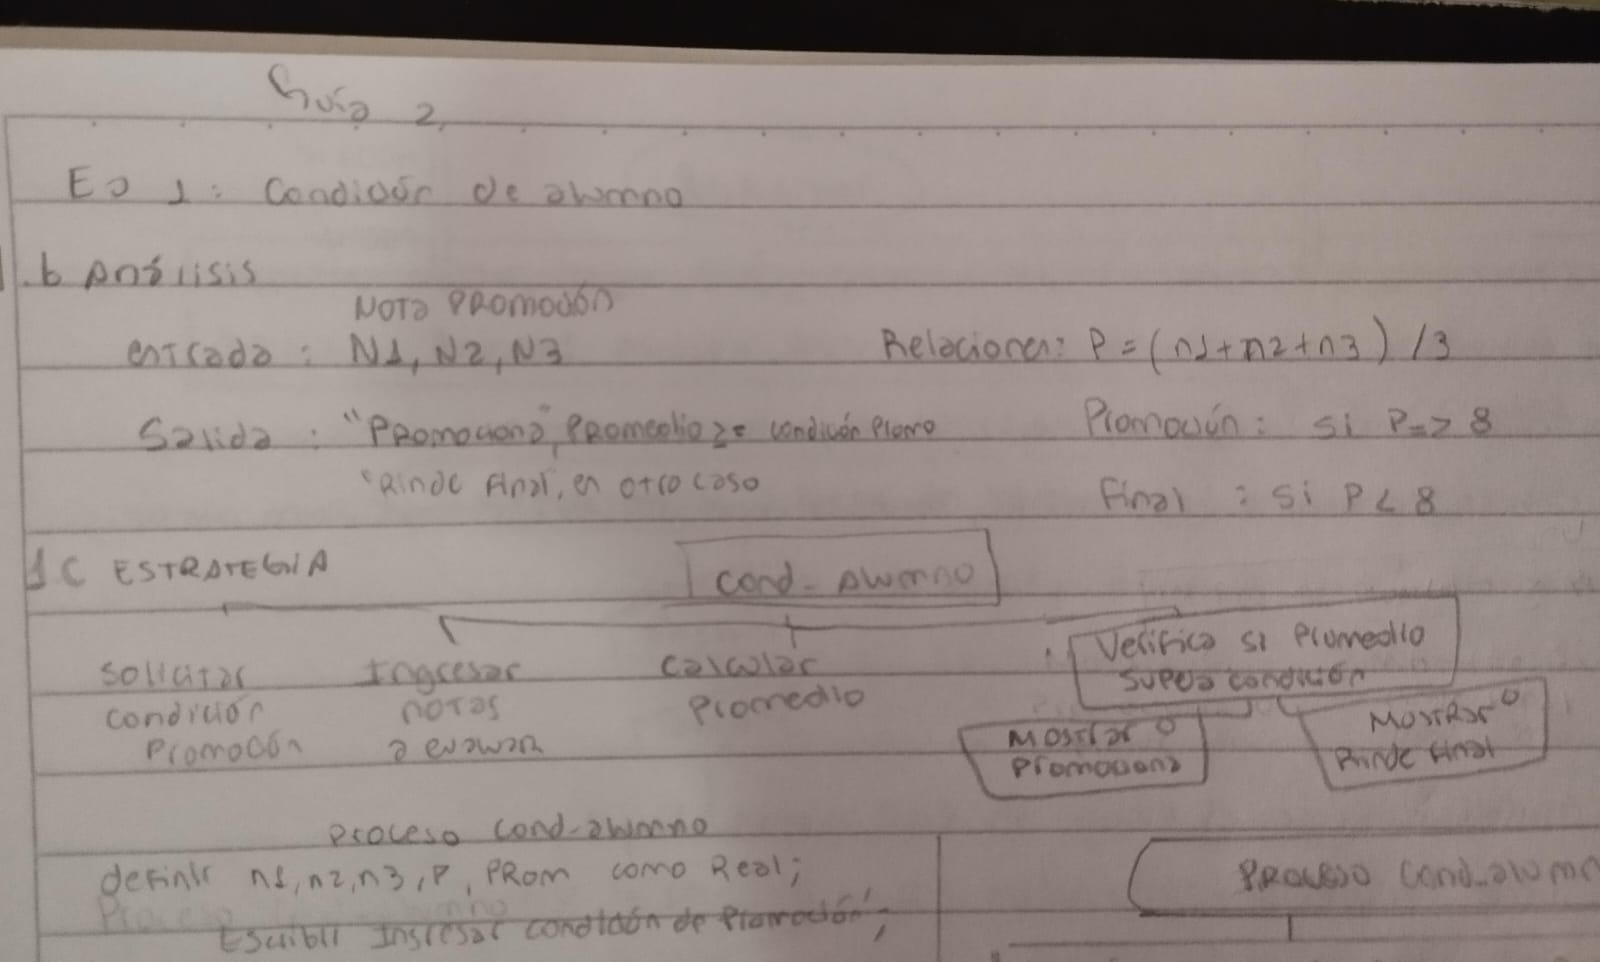 Guía 2
EJ 1: Condición de alumno
.b Análisis
NOTA PROMOCIÓN
entrada: N1, N2, N3
Relaciones: P = (n1+n2+n3) /3
Salida: "Promociona", Promedio >= condición Promo
Promoción: si P=> 8
"Rinde Final", en otro caso
Final : si P < 8
1C ESTRATEGIA
Cond_Alumno
Solicitar condición Promoción
Ingresar notas a evaluar
Calcular Promedio
Verifica si Promedio supera condición
Mostrar O Promociona
Mostrar O Rinde Final
Proceso Cond-alumno
definir n1, n2, n3, P, PRom como Real;
Escribir Ingresar condición de Promoción';
Proceso Cond_alumn